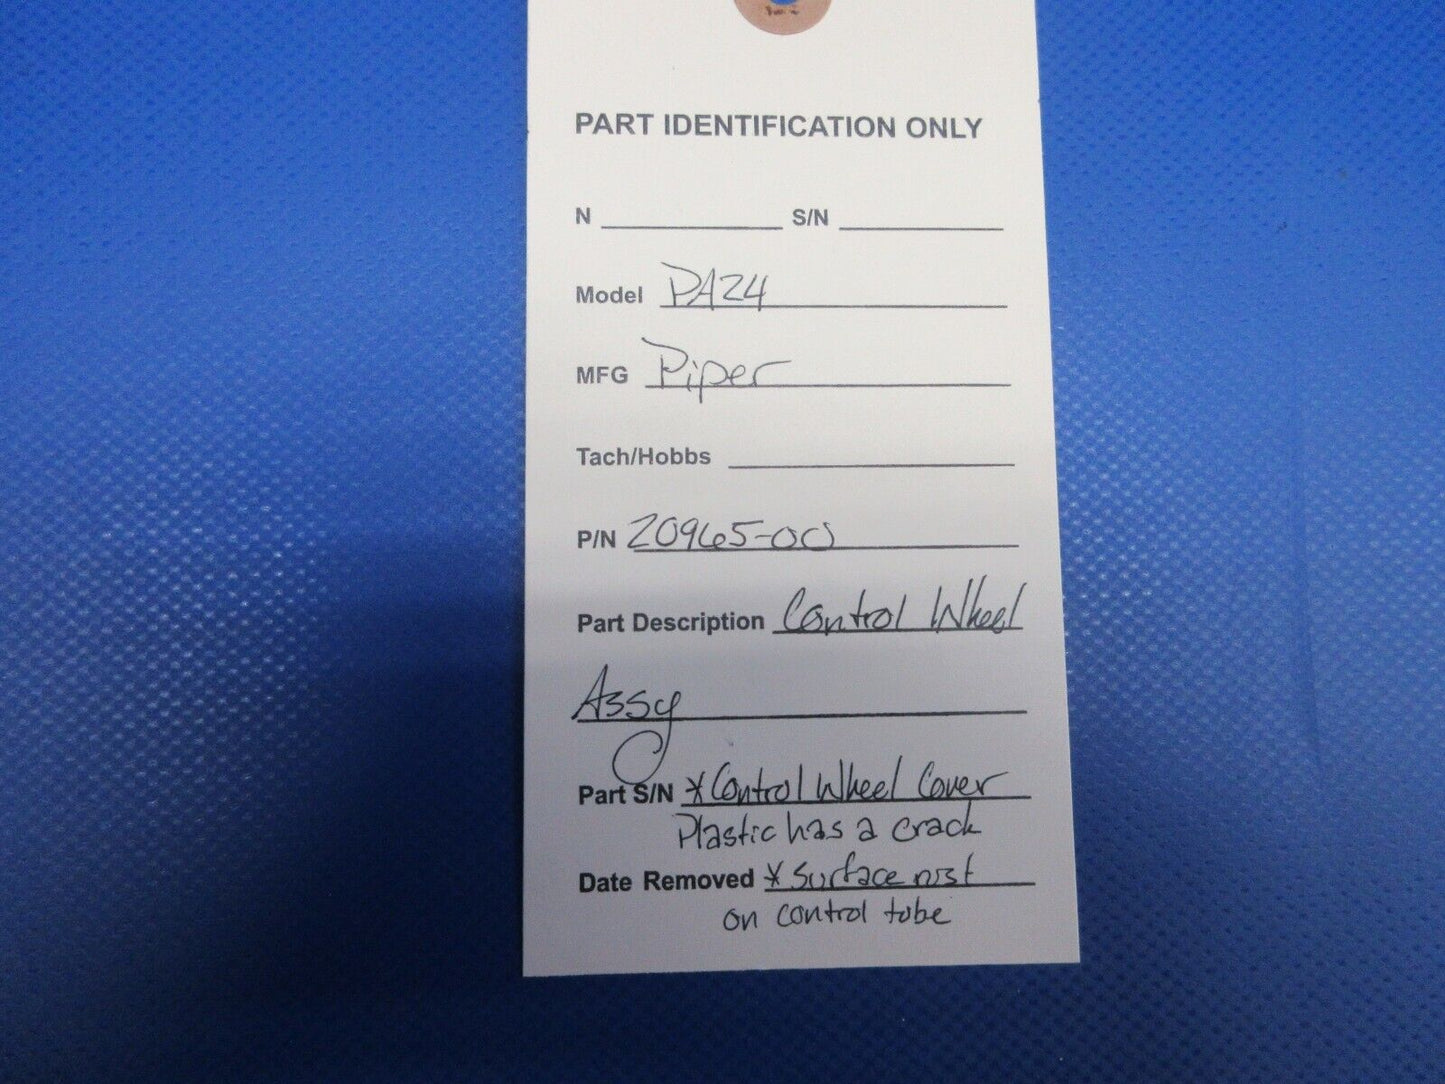 PART IDENTIFICATION ONLY
N S/N
Model PA24
MFG Piper
Tach/Hobbs
P/N 20965-00
Part Description Control Wheel
Assy
Part S/N * Control Wheel Cover
Plastic has a crack
Date Removed * Surface rust
on control tube